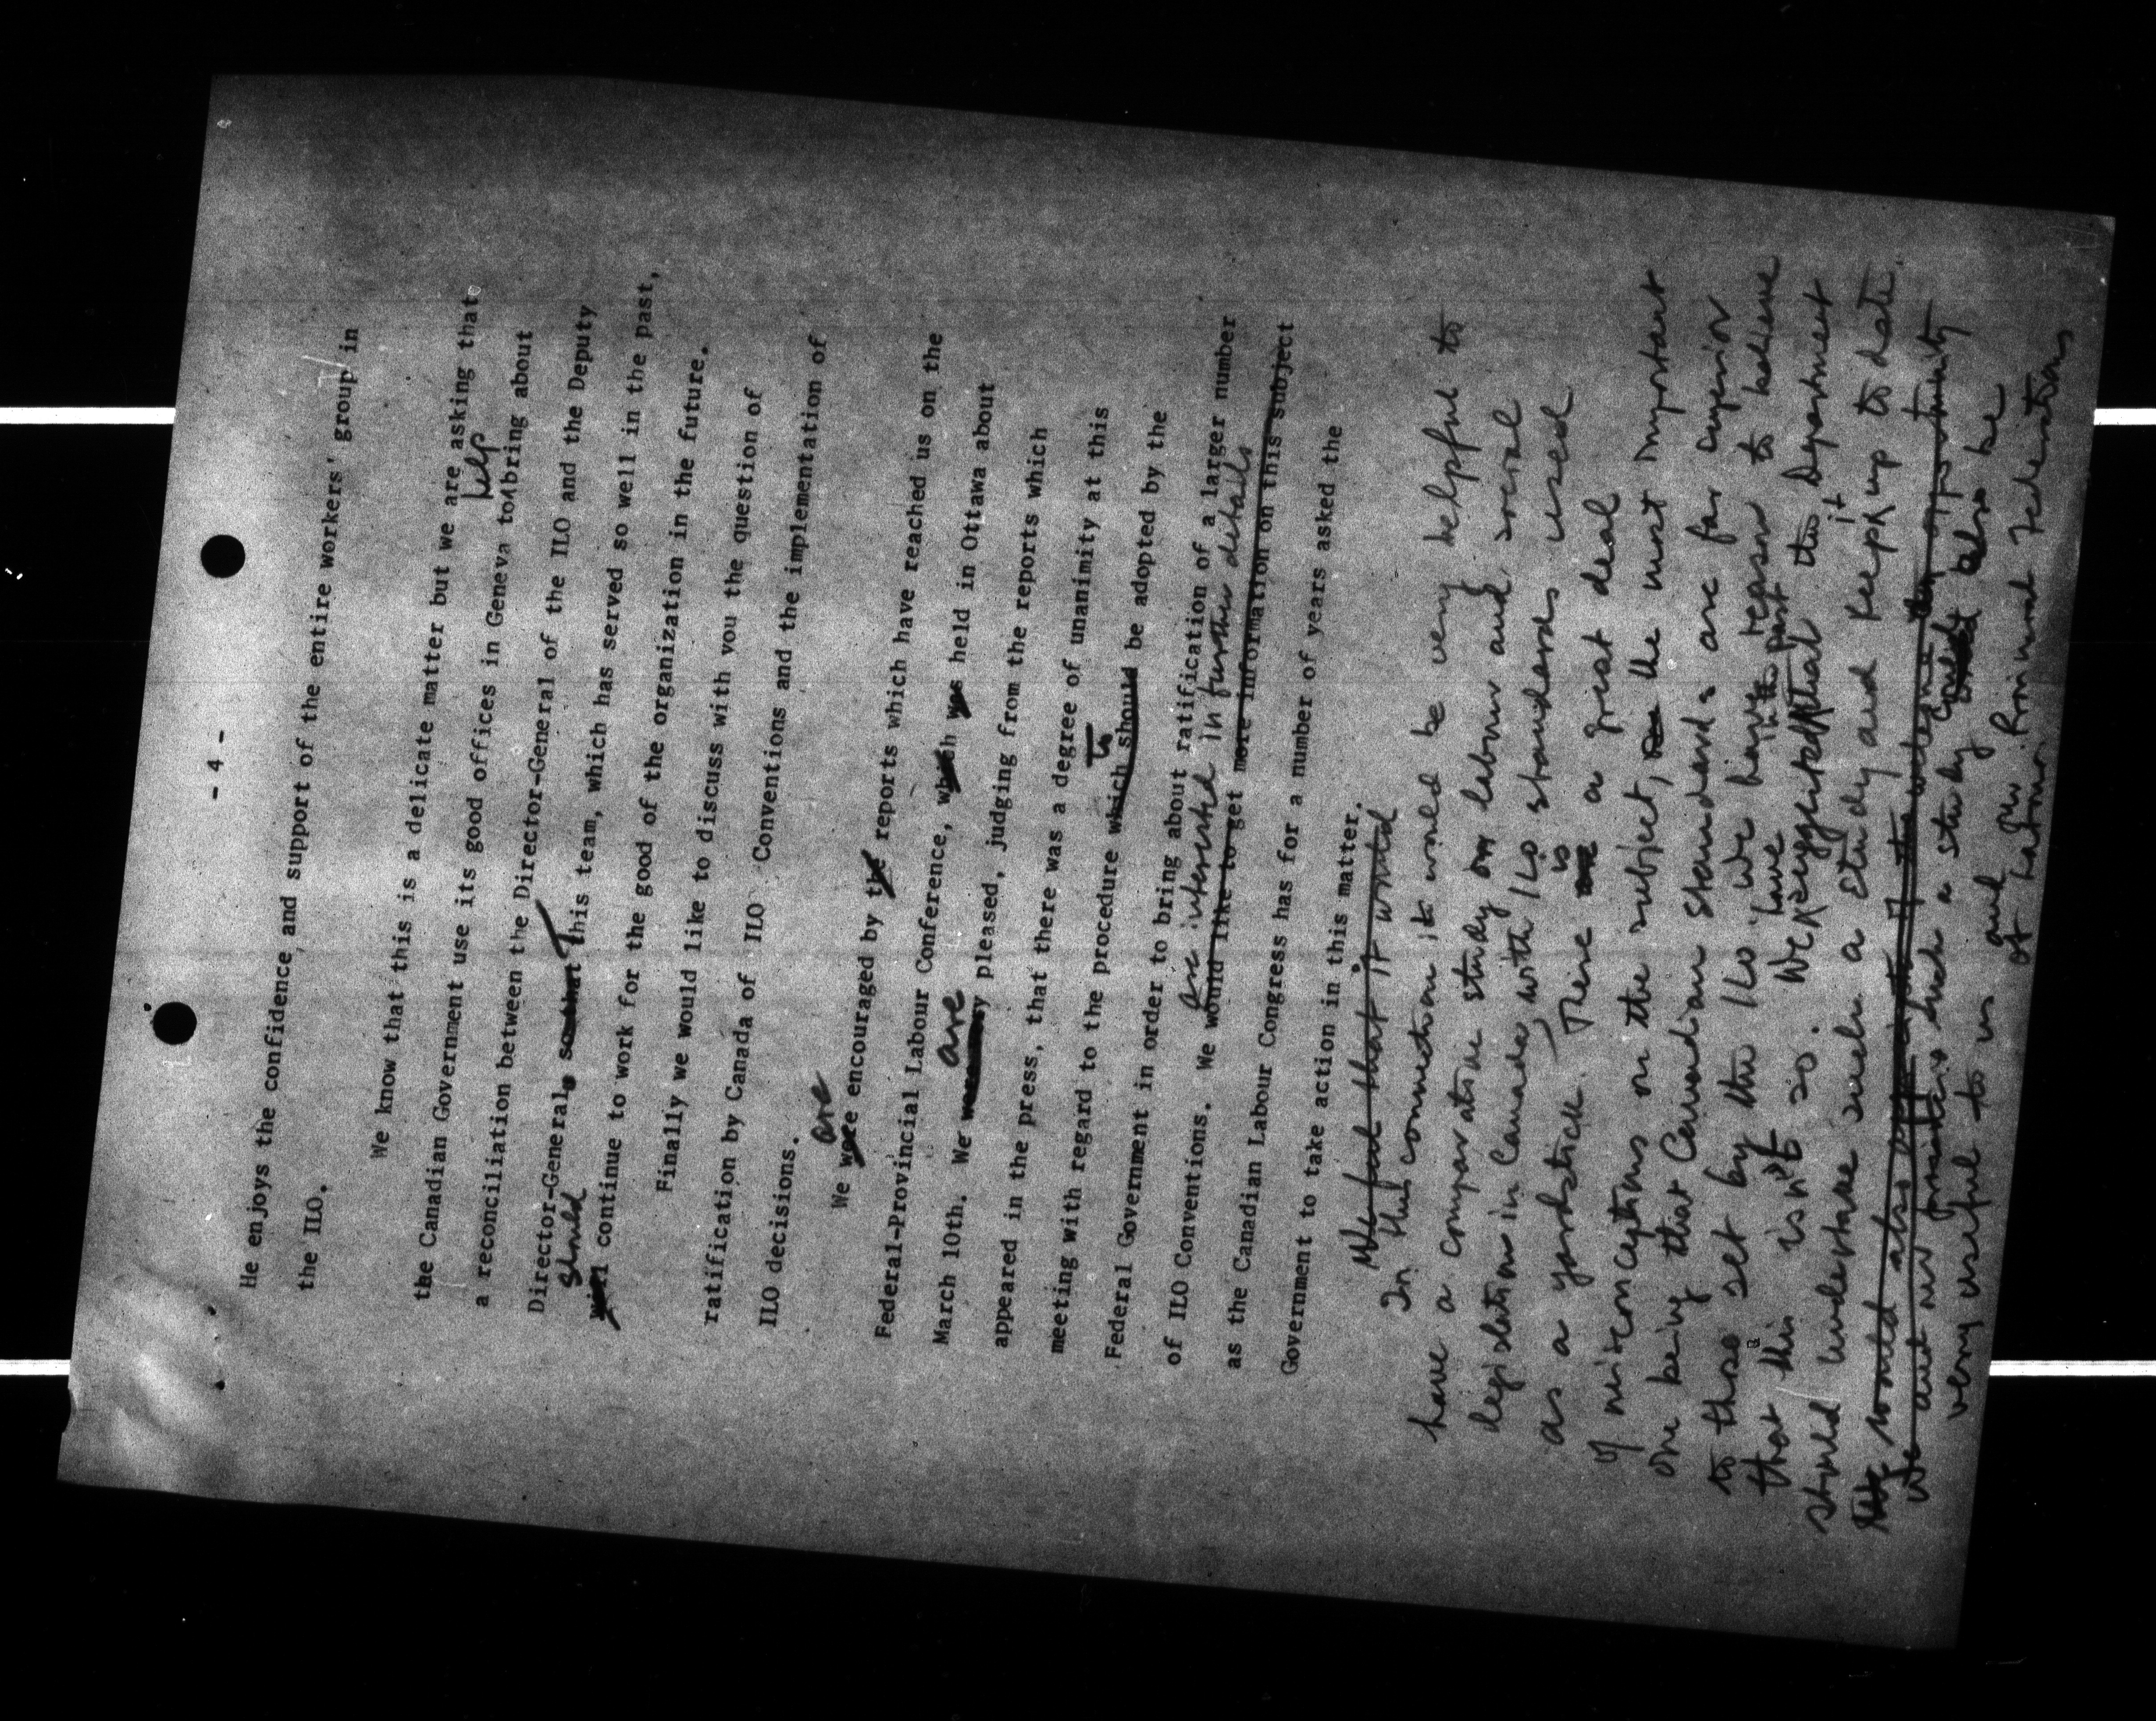 - 4 -
He enjoys the confidence and support of the entire workers' group in
the ILO.
We know that this is a delicate matter but we are asking that
the Canadian Government use its good offices in Geneva to help bring about
a reconciliation between the Director-General of the ILO and the Deputy
Director-General. so that this team, which has served so well in the past,
should will continue to work for the good of the organization in the future.
Finally we would like to discuss with you the question of
ratification by Canada of ILO Conventions and the implementation of
ILO decisions.
We were are encouraged by the reports which have reached us on the
Federal-Provincial Labour Conference, which was held in Ottawa about
March 10th. We are pleased, judging from the reports which
appeared in the press, that there was a degree of unanimity at this
meeting with regard to the procedure which should to be adopted by the
Federal Government in order to bring about ratification of a larger number
of ILO Conventions. We would like to get more information on this subject are interested in further details
as the Canadian Labour Congress has for a number of years asked the
Government to take action in this matter.
We feel that it would
In this connection it would be very helpful to
have a comparative study on labour and social
legislation in Canada, with ILO standards used
as a yardstick. There is a great deal
of misconceptions on the subject, the most important
one being that Canadian standards are far superior
to those set by the ILO. We have reason to believe
that this isn't so. We have in the past suggested that the Department
should undertake such a study and keep it up to date.
We would also the opportunity
We and our such a study could also be
very useful to us and our Provincial Federations
of Labour.